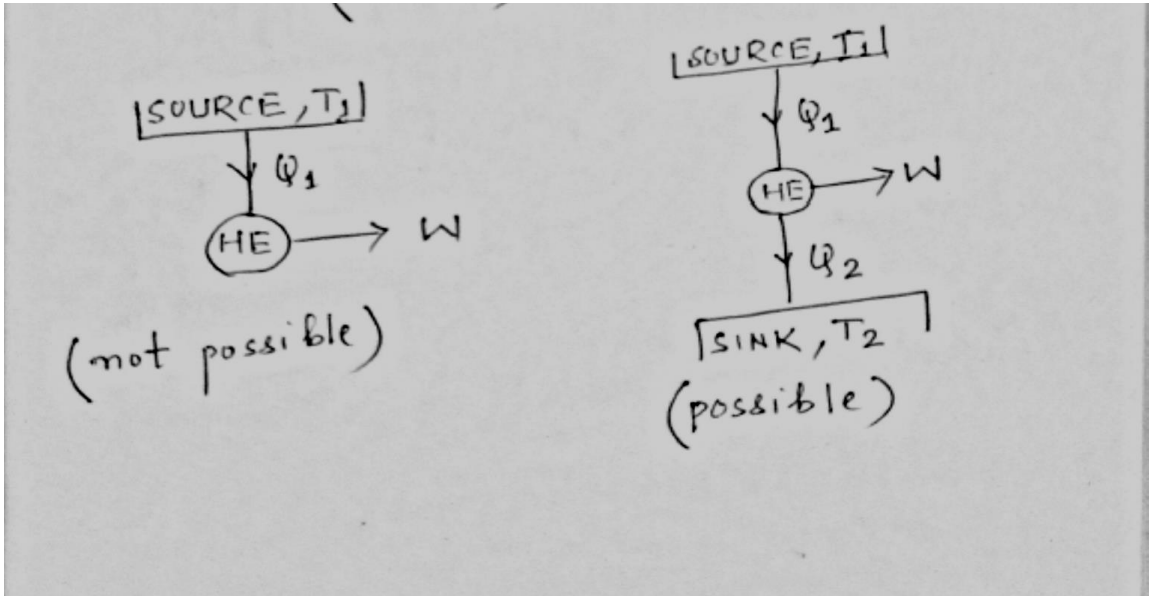 SOURCE, T1
Q1
HE
W
(not possible)
SOURCE, T1
Q1
HE
W
Q2
SINK, T2
(possible)